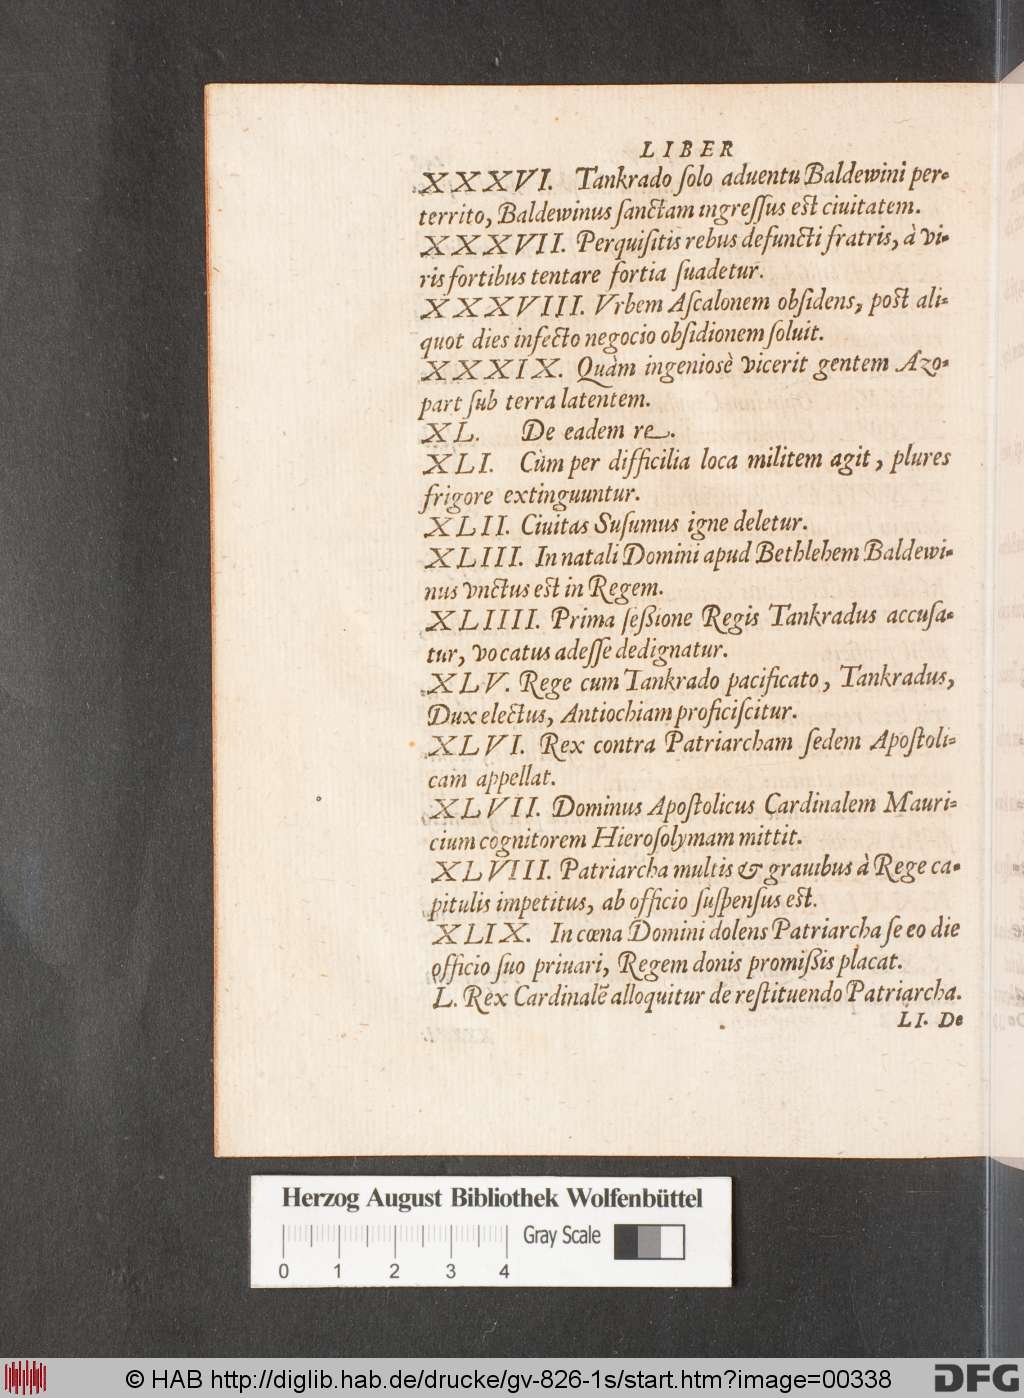 LIBER
XXXVI. Tankrado ſolo aduentu Baldewini per-
territo, Baldewinus ſanctam ingreſſus est ciuitatem.
XXXVII. Perquiſitis rebus defuncti fratris, à vi-
ris fortibus tentare fortia ſuadetur.
XXXVIII. Vrbem Aſcalonem obſidens, post ali-
quot dies infecto negocio obſidionem ſoluit.
XXXIX. Quàm ingeniosè vicerit gentem Azo-
part ſub terra latentem.
XL. De eadem re.
XLI. Cùm per difficilia loca militem agit, plures
frigore extinguuntur.
XLII. Ciuitas Suſumus igne deletur.
XLIII. In natali Domini apud Bethlehem Baldewi-
nus vnctus est in Regem.
XLIIII. Prima ſeßione Regis Tankradus accuſa-
tur, vocatus adeſſe dedignatur.
XLV. Rege cum Tankrado pacificato, Tankradus,
Dux electus, Antiochiam proficiſcitur.
XLVI. Rex contra Patriarcham ſedem Apoſtoli-
cam appellat.
XLVII. Dominus Apoſtolicus Cardinalem Mauri-
cium cognitorem Hieroſolymam mittit.
XLVIII. Patriarcha multis & grauibus à Rege ca-
pitulis impetitus, ab officio ſuſpenſus est.
XLIX. In cœna Domini dolens Patriarcha ſe eo die
officio ſuo priuari, Regem donis promißis placat.
L. Rex Cardinalē alloquitur de reſtituendo Patriarcha.
LI. De
Herzog August Bibliothek Wolfenbüttel
Gray Scale
0 1 2 3 4
© HAB http://diglib.hab.de/drucke/gv-826-1s/start.htm?image=00338
DFG